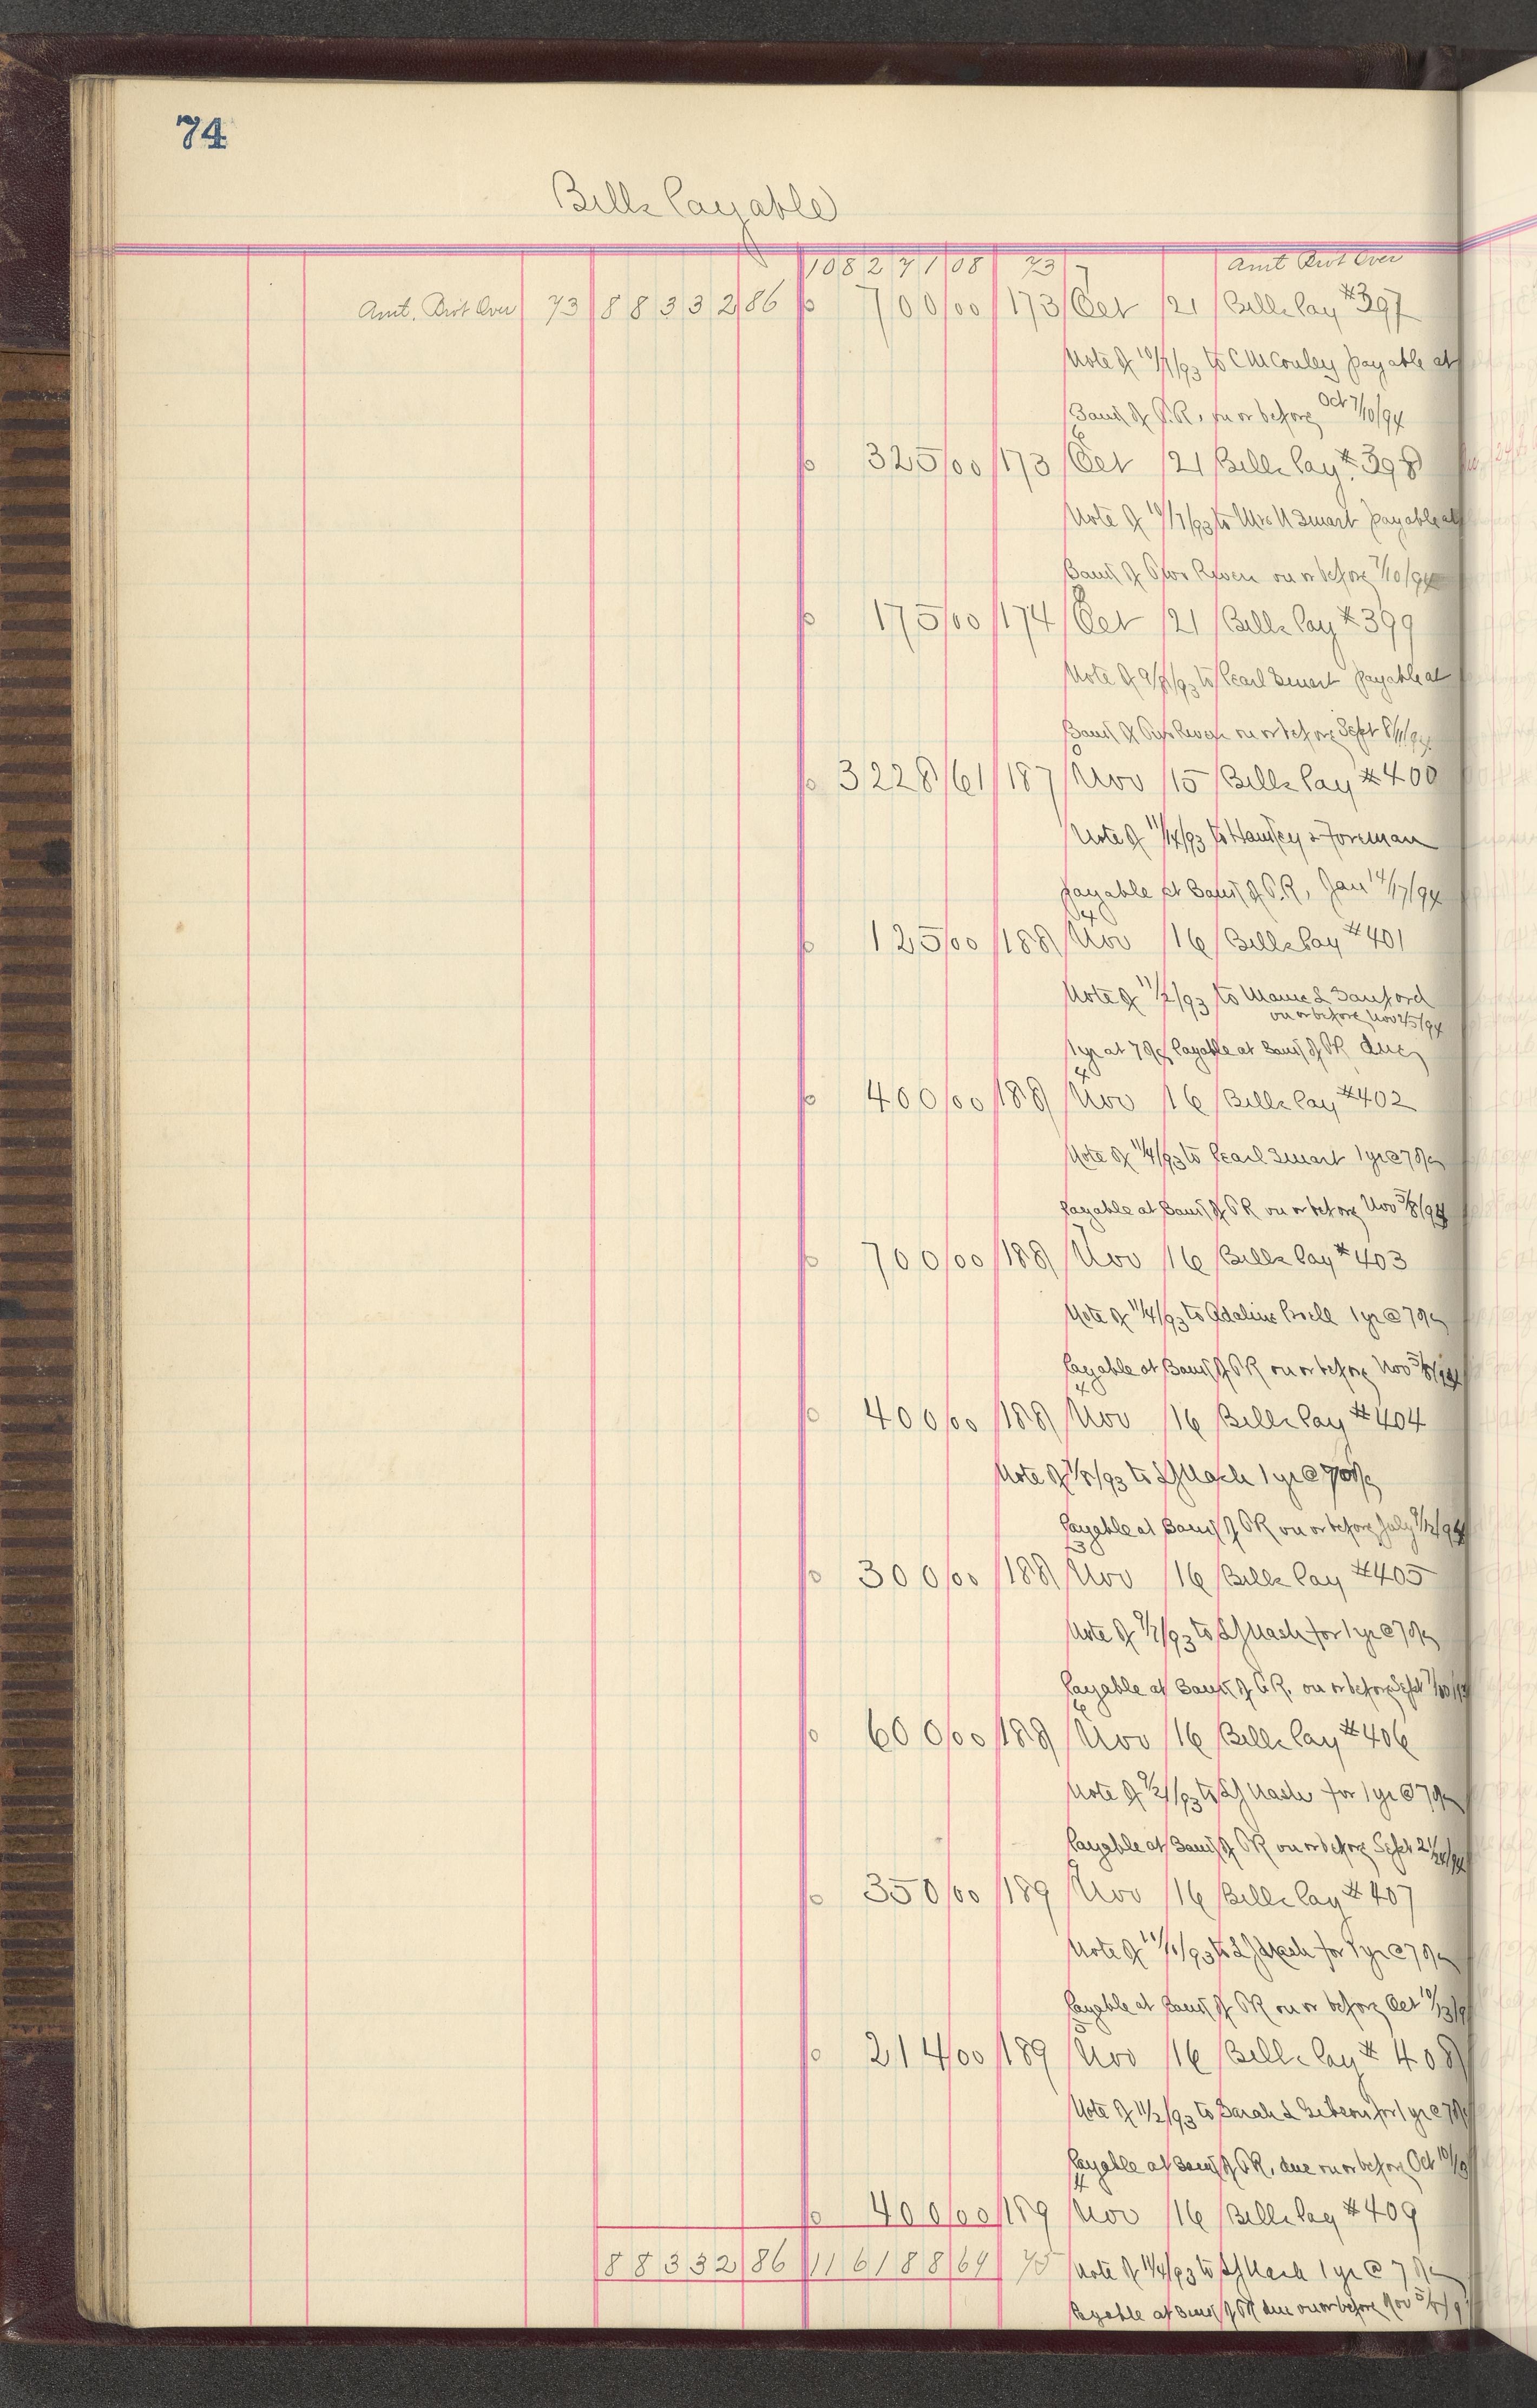 74
Bills Payable
108271 08 73 Amt Brot Over
Amt. Brot Over 73 88332 86 700 00 173 Oct 21 Bills Pay #397
Note of 10/7/93 to C M Conley payable at
Bank of P.R. on or before Oct 7/10/94
325 00 173 Oct 21 Bills Pay #398
Note of 10/7/93 to Mrs N Smart payable at
Bank of Two Rivers on or before 7/10/94
175 00 174 Oct 21 Bills Pay #399
Note of 9/8/93 to Pearl Smart payable at
Bank of on or before Sept 8/11/94
3228 61 187 Nov 15 Bills Pay #400
Note of 11/14/93 to Hawley & Foreman
payable at Bank of P.R, Jan 14/17/94
125 00 188 Nov 16 Bills Pay #401
Note of 11/2/93 to Mamie L Sanford
on or before Nov 2/5/94
1 yr at 7% Payable at Bank of PR due
400 00 188 Nov 16 Bills Pay #402
Note of 11/4/93 to Pearl Smart 1 yr @ 7%
Payable at Bank of PR on or before Nov 5/8/94
700 00 188 Nov 16 Bills Pay #403
Note of 11/4/93 to Adaline 1 yr @ 7%
Payable at Bank of PR on or before Nov 5/8/94
400 00 188 Nov 16 Bills Pay #404
Note of to L J Nash 1 yr @ 7%
Payable at Bank of PR on or before July
300 00 188 Nov 16 Bills Pay #405
Note of 9/7/93 to L J Nash for 1 yr @ 7%
Payable at Bank of P.R. on or before Sept 7/10/
600 00 188 Nov 16 Bills Pay #406
Note of 9/21/93 to L J Nash for 1 yr @ 7%
Payable at Bank of PR on or before Sept 21/24/94
350 00 189 Nov 16 Bills Pay #407
Note of to L J Nash for 1 yr @ 7%
Payable at Bank of PR on or before Oct 10/13/9
214 00 189 Nov 16 Bills Pay #408
Note of 11/2/93 to Sarah L for 1 yr @ 7%
Payable at Bank of PR, due on or before Oct
400 00 189 Nov 16 Bills Pay #409
88332 86 116188 69 75 Note of 11/4/93 to L J Nash 1 yr @ 7%
Payable at Bank of PR due on or before Nov